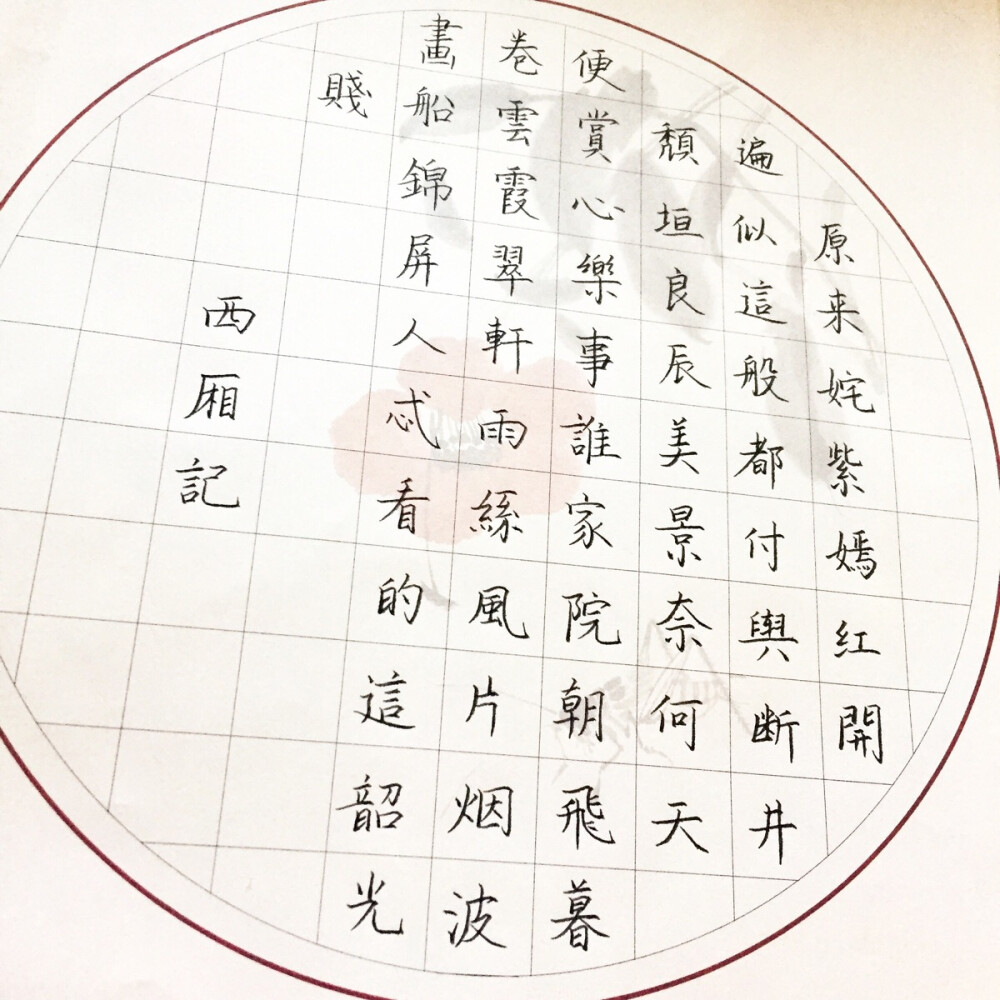 原来姹紫嫣红開
遍似這般都付與断井
頹垣良辰美景奈何天
便賞心樂事誰家院朝飛暮
卷雲霞翠軒雨絲風片烟波
畫船錦屏人忒看的這韶光
賤
西厢記